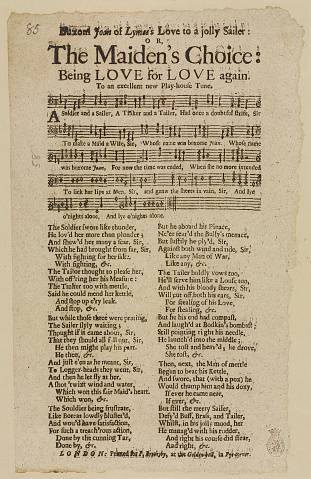 85
Buxom Joan of Lymas's Love to a jolly Sailer:
OR,
The Maiden's Choice:
Being LOVE for LOVE again.
To an excellent new Play-house Tune.
A Soldier and a Sailer, A Tinker and a Tailer, Had once a doubtful strife, Sir
To make a Maid a Wife, Sir, Whose name was buxome Joan. Whose name
was buxome Joan. For now the time was ended, When she no more intended
To lick her lips at Men, Sir, and gnaw the sheets in vain, Sir, And lye
o'nights alone, And lye o'nights alone.
The Soldier swore like thunder,
He lov'd her more than plunder;
And shew'd her many a scar, Sir,
Which he had brought from far, Sir,
With fighting for her sake.
With fighting, &c.
The Tailor thought to please her,
With off'ring her his Measure:
The Tinker too with mettle,
Said he could mend her kettle,
And stop up e'ry leak.
And stop, &c.
But while these three were prating,
The Sailer slyly waiting;
Thought if it came about, Sir,
That they should all fall out, Sir,
He then might play his part.
He then, &c.
And just e'en as he meant, Sir,
To Loggerheads they went, Sir,
And then he let fly at her,
A shot 'twixt wind and water,
Which won this fair Maid's heart.
Which won, &c.
The Souldier being frustrate,
Like Boreas lowdly bluster'd,
And wou'd have satisfaction,
For such a treach'rous action,
Done by the cunning Tar,
Done by, &c.
But he aboard his Pinace,
Ne'er fear'd the Bully's menace,
But lustily he ply'd, Sir,
Against both wind and tide, Sir,
Like any Man of War,
Like any, &c.
The Tailer boldly vows too,
He'll serve him like a Louse too,
And with his bloody sheers, Sir,
Will put off both his ears, Sir,
For stealing of his Love,
For stealing, &c.
But he his end had compast,
And laugh'd at Bodkin's bombast;
Still pointing right his needle,
He launch'd into the middle;
She tost and heav'd; he drove,
She tost, &c.
Then, next, the Man of mettle
Began to beat his Kettle,
And swore, that (with a pox) he
Would thump him and his doxy,
If ever he came near,
If ever, &c.
But still the merry Sailer,
Defy'd Buff, Brass, and Tailer,
Whilst, in his jolly mood, her
He manag'd with his rudder,
And right his course did stear,
And right, &c.
LONDON: Printed for P. Brooksby, at the Golden-ball, in Pye-corner.